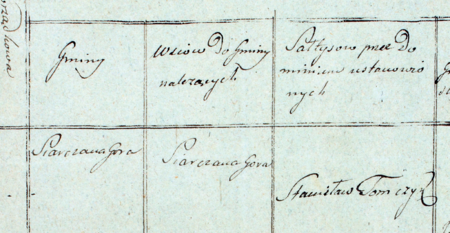 Gminy
Wsiow do Gminy
należących
Sołtysow prze do
minium ustanowio
nych
Siarczana Gora
Siarczana Gora
Stanisław Tomczyk